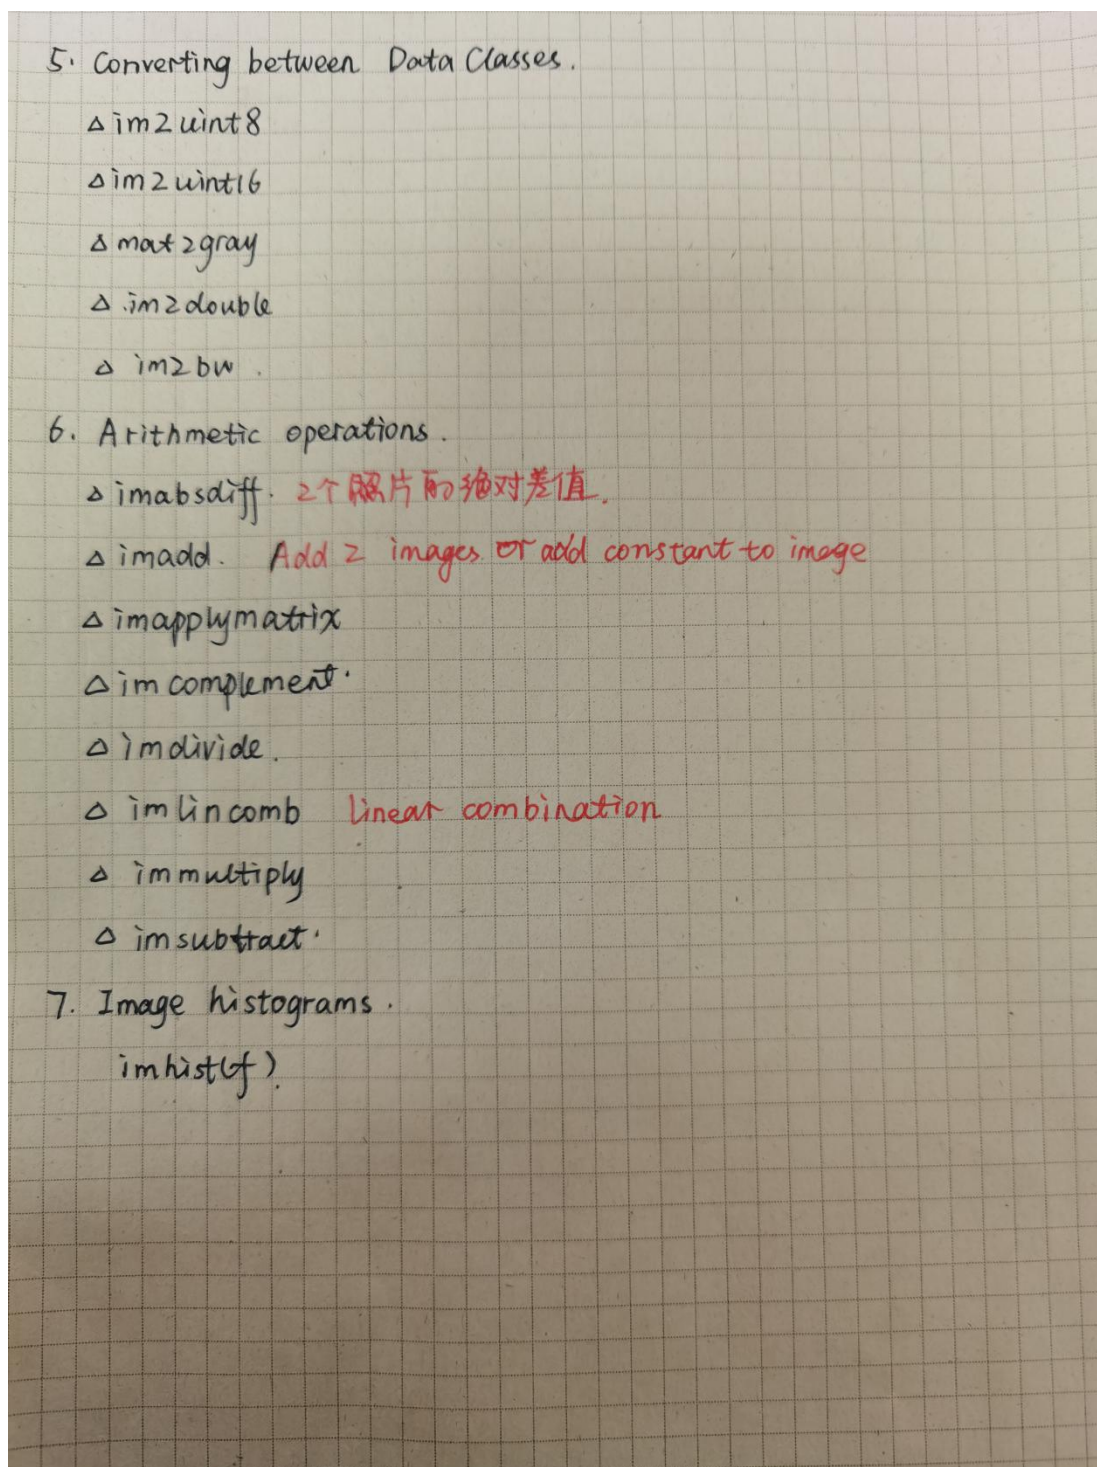 5. Converting between Data Classes.
△ im2uint8
△ im2uint16
△ mat2gray
△ im2double
△ im2bw.
6. Arithmetic operations.
△ imabsdiff. 2个照片的绝对差值.
△ imadd. Add 2 images or add constant to image
△ imapplymatrix
△ imcomplement.
△ imdivide.
△ imlincomb linear combination
△ immultiply
△ imsubtract.
7. Image histograms.
imhist(f).